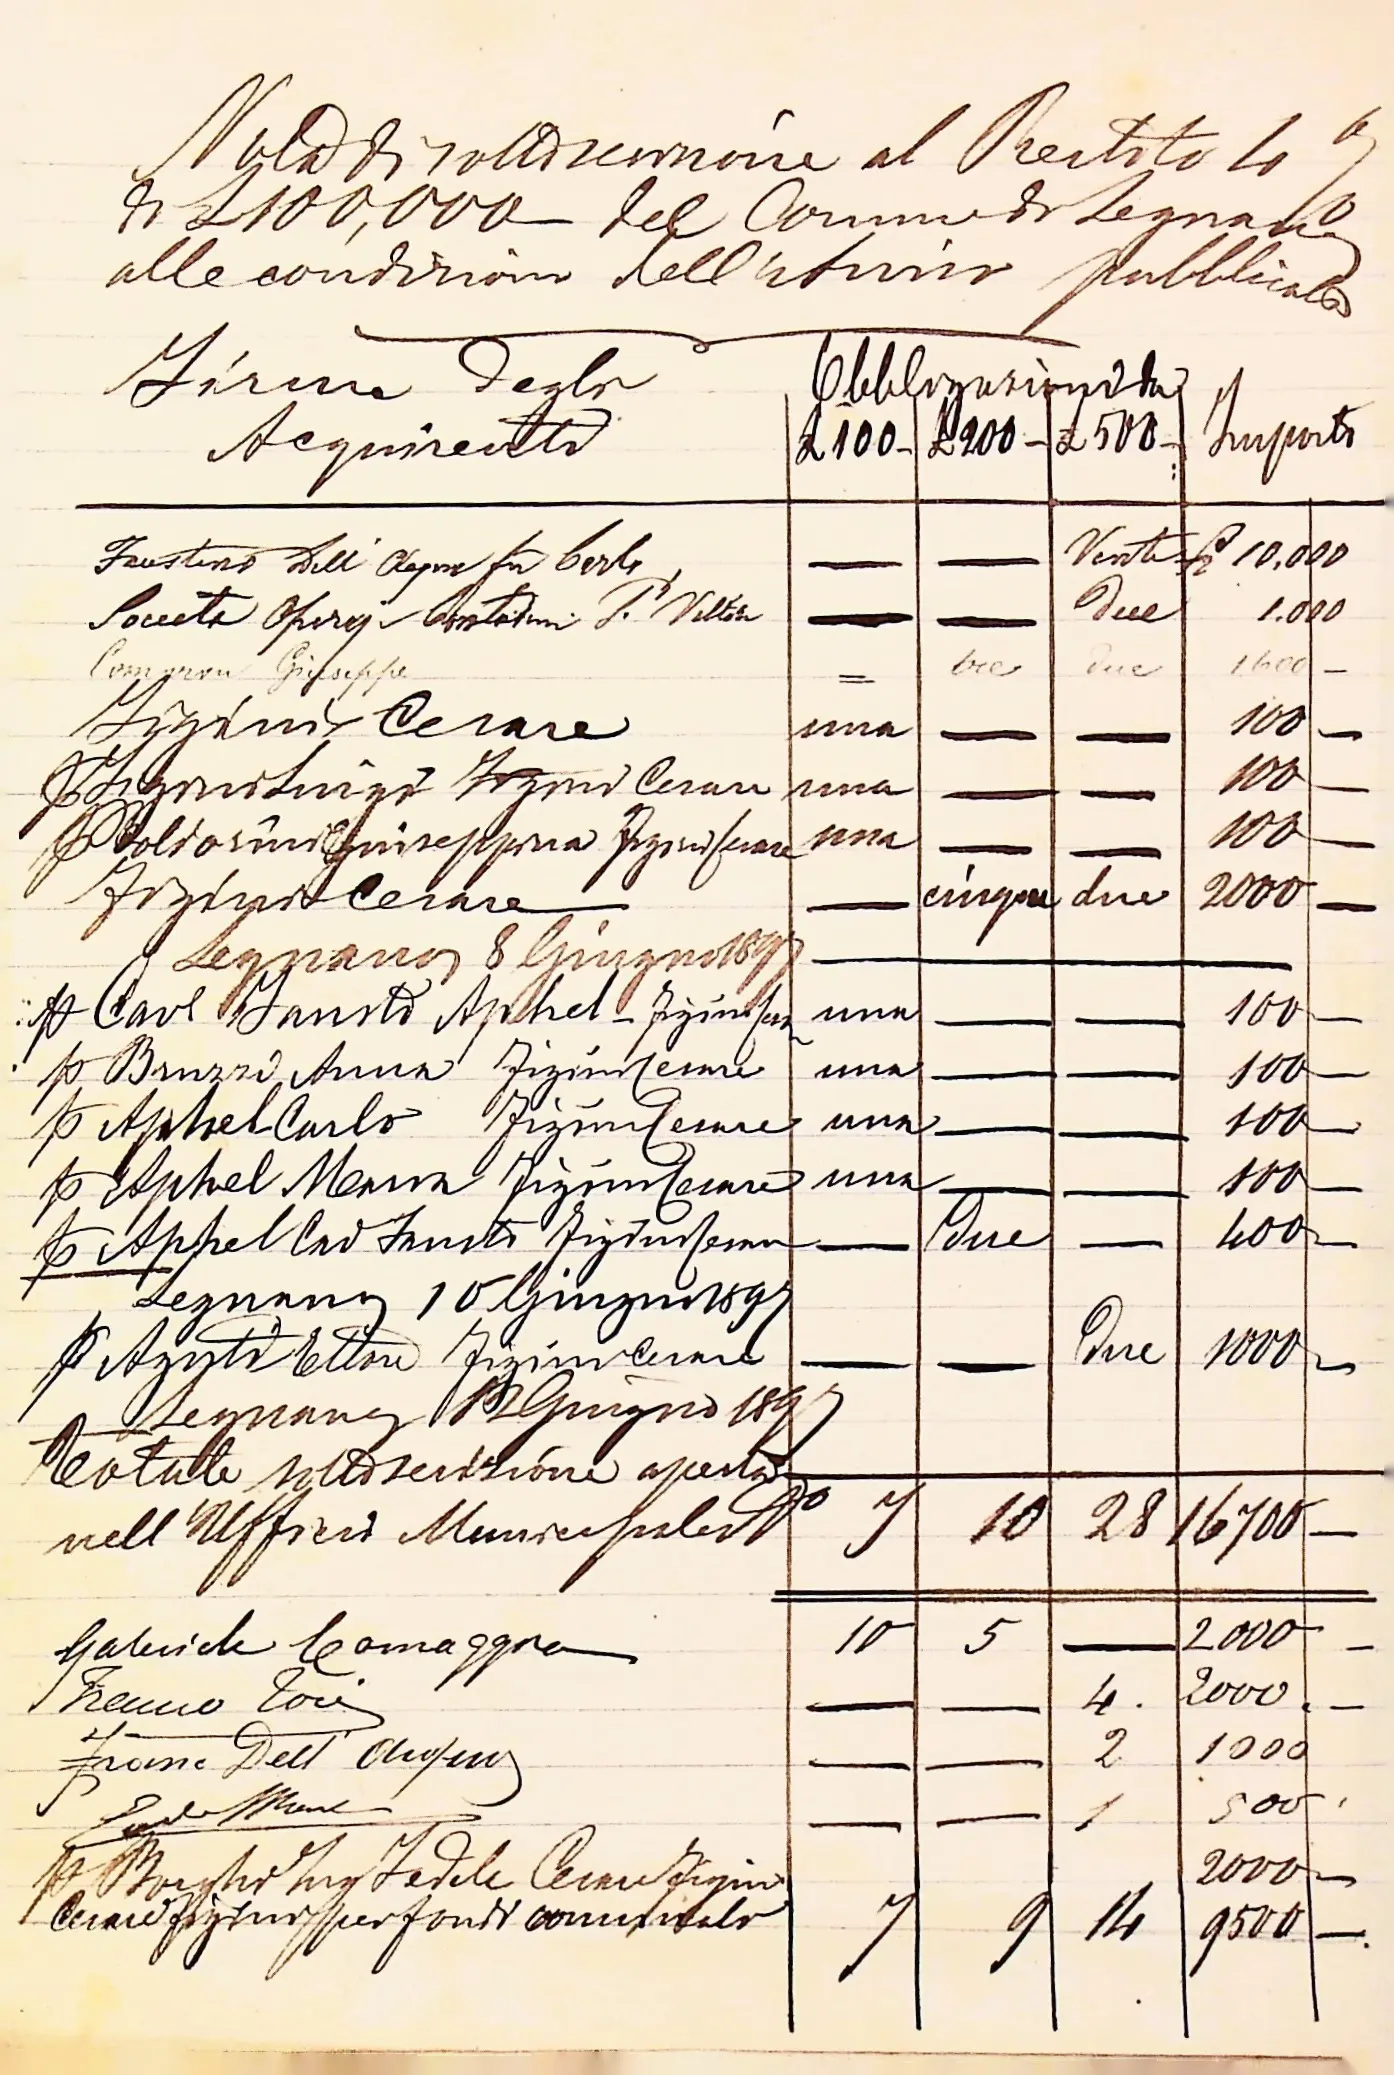 Nota di sottoscrizione al Prestito 4 %
di £100,000 del Comune di Legnano
alle condizioni dell' pubblicato
Firme degli Acquirenti
Obbligazioni da
£ 100 - £ 200 - £ 500 - Importo
Faustino Dell' Acqua fu Carlo — — Venti £ 10.000
Società Operaj Contadini — — Due 1.000
Giuseppe = tre due 1600 -
Figini Cesare una — — 100 —
p Figini Luigi Figini Cesare una — — 100 —
p Giuseppina Figini Cesare una — — 100 —
Figini Cesare — cinque due 2000 —
Legnano, 8 Giugno 1897
p Cav Fausto Aphel - Figini Cesare una — — 100 —
p Bruzzi Anna Figini Cesare una — — 100 —
p Aphel Carlo Figini Cesare una — — 100 —
p Aphel Maria Figini Cesare una — — 100 —
p Aphel Cav Fausto Figini Cesare — Due — 400 —
Legnano, 10 Giugno 1897
p Ettore Figini Cesare — — Due 1000 —
Legnano, 12 Giugno 1897
Totale sottoscrizione aperta
nell' Ufficio Municipale 7 10 28 16700 —
Gabriele Comaggia 10 5 — 2000 —
Franco Tosi — — 4. 2000. —
Franc. Dell' Acqua — — 2 1000
— — 1 500
p Borghi Ing Fedele Cesare Figini 2000 —
Cesare Figini per fondi comunali 7 9 14 9500 —